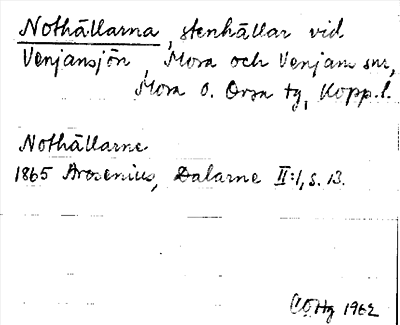 Nothällarna, stenhällar vid
Venjansjön, Mora och Venjans snr,
Mora o. Orsa tg, Kopp.l.
Nothällarne
1865 Arosenius, Dalarne II:1, s. 13.
COHg 1962